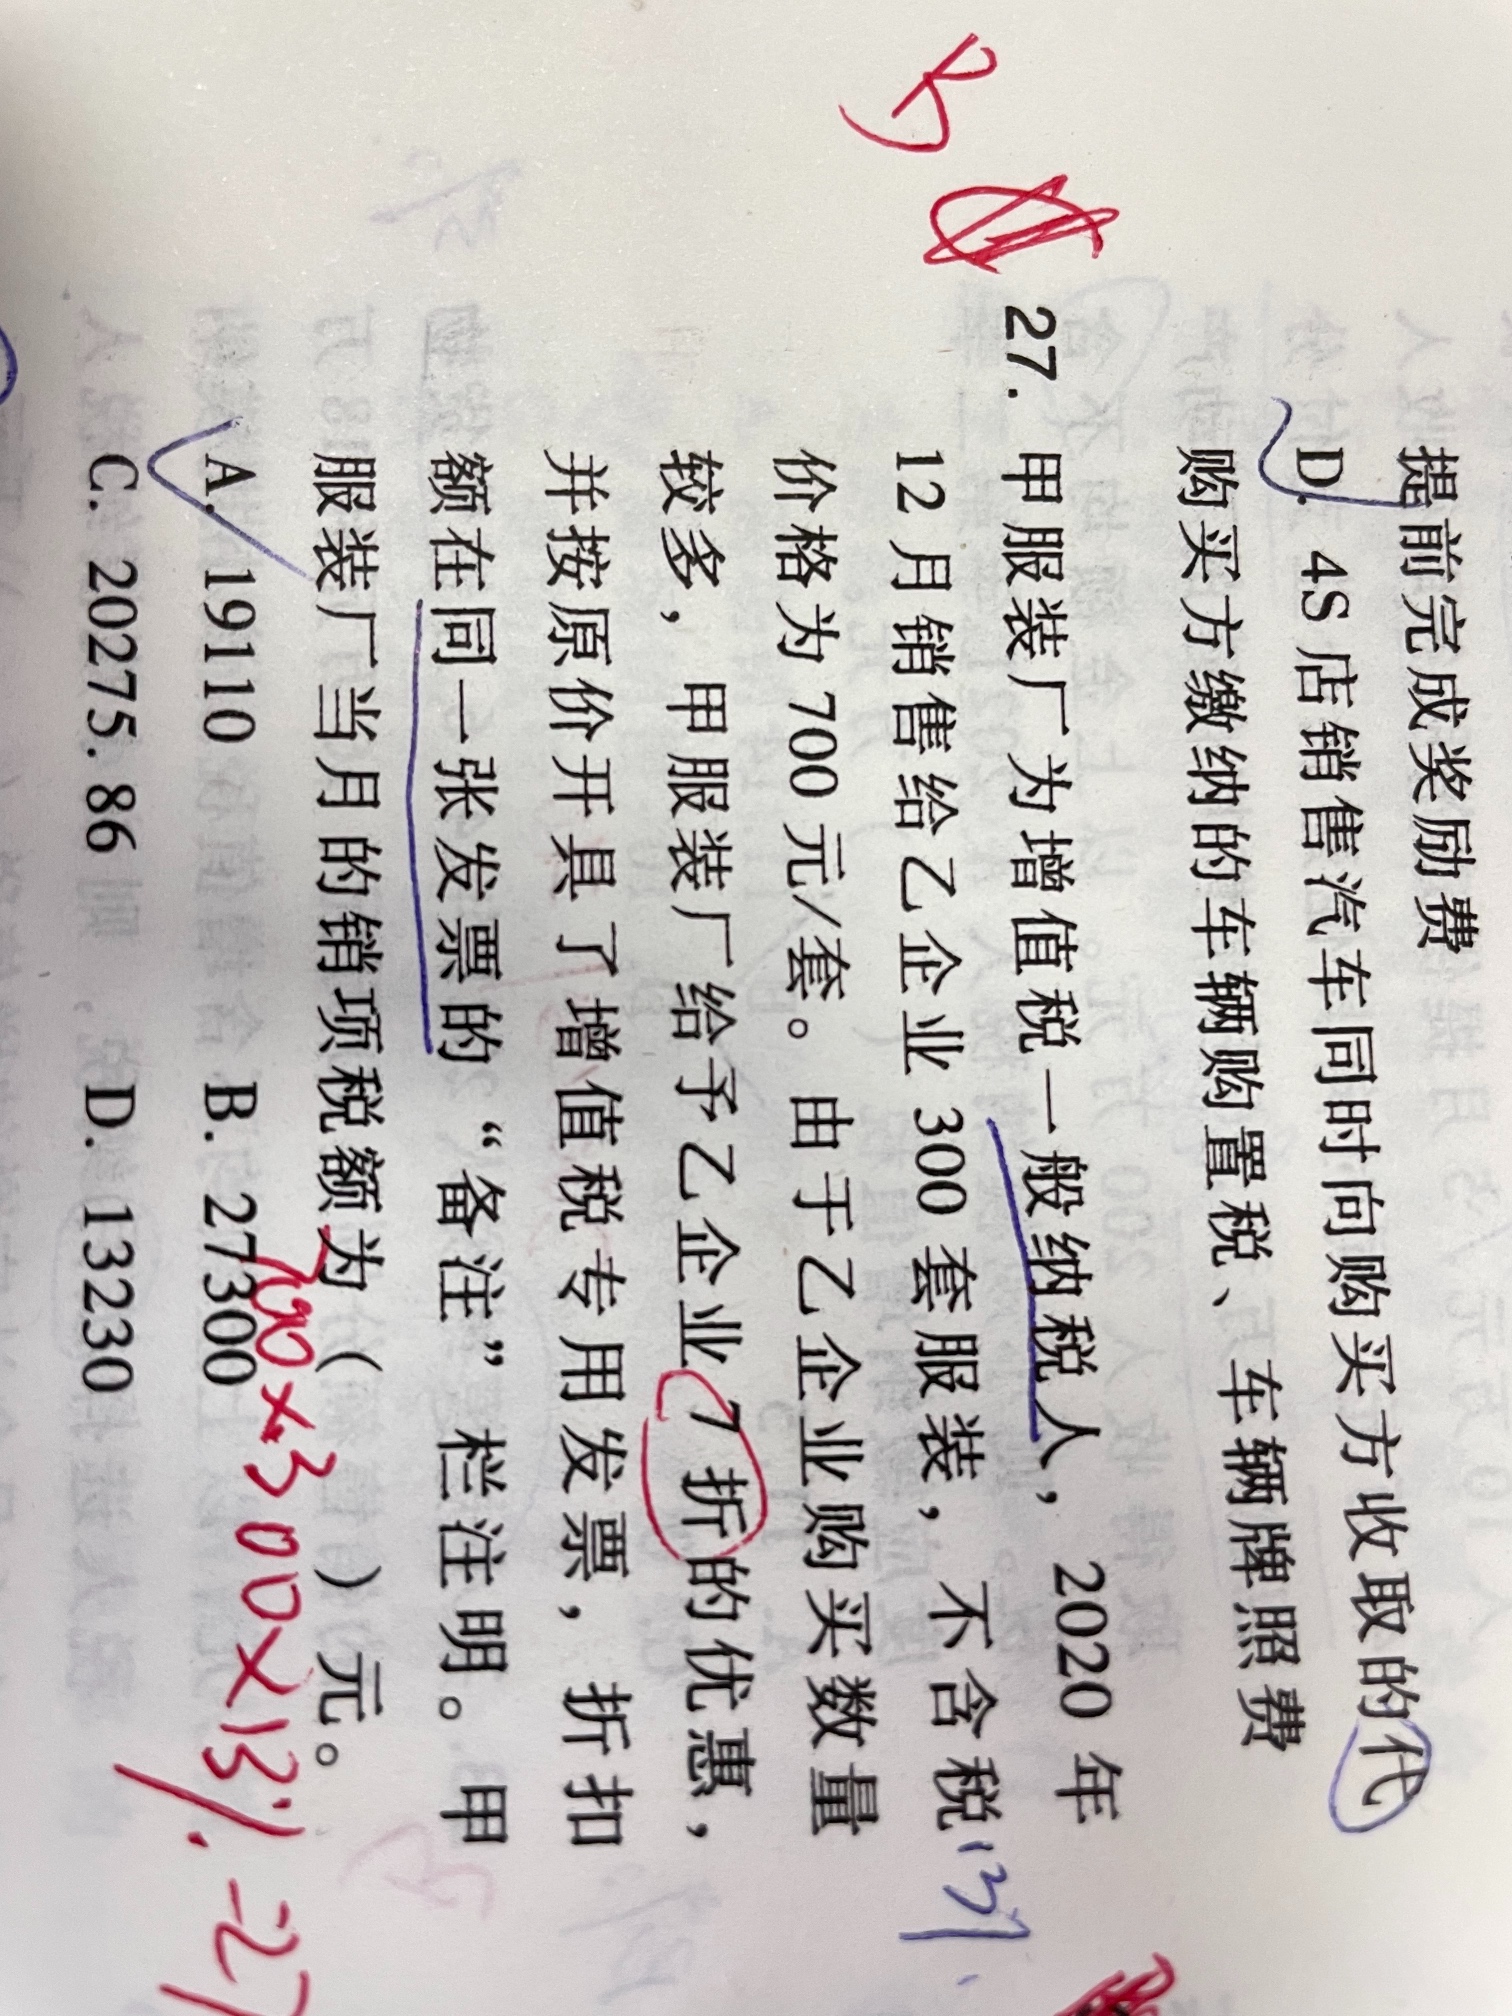 提前完成奖励费
D. 4S店销售汽车同时向购买方收取的代
购买方缴纳的车辆购置税、车辆牌照费
B
27. 甲服装厂为增值税一般纳税人，2020年
12月销售给乙企业300套服装，不含税
13%
价格为700元/套。由于乙企业购买数量
较多，甲服装厂给予乙企业7折的优惠，
并按原价开具了增值税专用发票，折扣
额在同一张发票的“备注”栏注明。甲
服装厂当月的销项税额为（ ）元。
A. 19110 B. 27300
C. 20275.86 D. 13230
700×300×13%=27